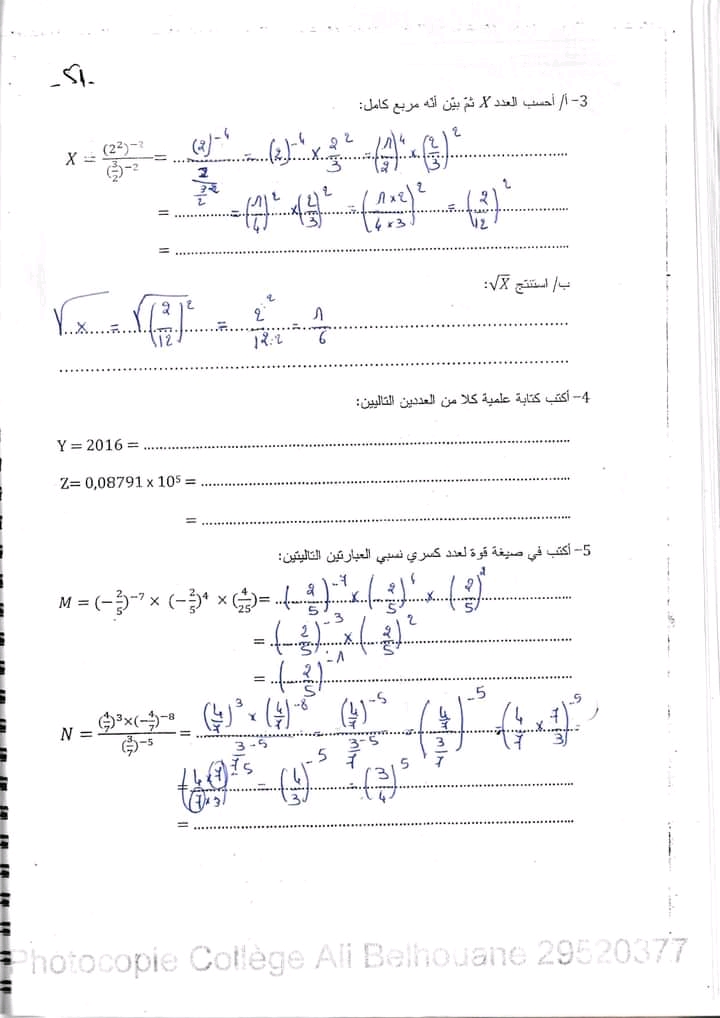 - 21 -
3- أ/ أحسب العدد X ثمّ بيّن أنه مربع كامل:
X = (2²)⁻² / (3/2)⁻² = (2)⁻⁴ / (3/2)⁻² = (2)⁻⁴ × (2/3)² = (1/2)⁴ × (2/3)²
= (1/4)² × (2/3)² = (1×2 / 4×3)² = (2/12)²
=
ب/ استنتج √X:
√x = √(2/12)² = 2:2 / 12:2 = 1/6
4- أكتب كتابة علمية كلا من العددين التاليين:
Y = 2016 =
Z= 0,08791 x 10⁵ =
=
5- أكتب في صيغة قوة لعدد كسري نسبي العبارتين التاليتين:
M = (−2/5)⁻⁷ × (−2/5)⁴ × (4/25)= (−2/5)⁻⁷ × (−2/5)⁴ × (−2/5)²
= (−2/5)⁻³ × (−2/5)²
= (−2/5)⁻¹
N = (4/7)³×(−4/7)⁻⁸ / (3/7)⁻⁵ = (4/7)³ × (4/7)⁻⁸ / (3/7)⁻⁵ = (4/7)⁻⁵ / (3/7)⁻⁵ = (4/7 / 3/7)⁻⁵ = (4/7 × 7/3)⁻⁵
= (4×7 / 7×3)⁻⁵ = (4/3)⁻⁵ = (3/4)⁵
=
Photocopie Collège Ali Belhouane 29520377